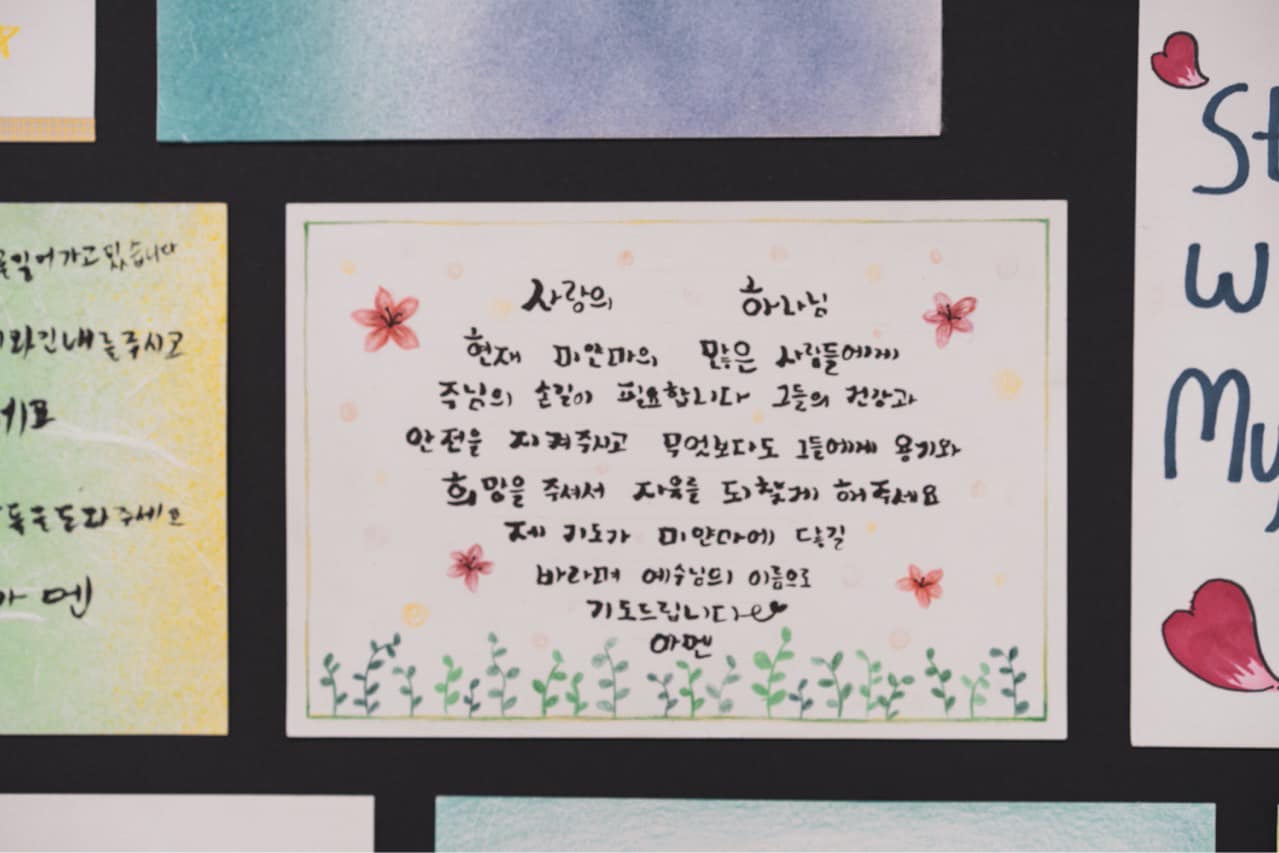 사랑의 하나님
현재 미얀마의 많은 사람들에게
주님의 손길이 필요합니다 그들의 건강과
안전을 지켜주시고 무엇보다도 그들에게 용기와
희망을 주셔서 자유를 되찾게 해주세요
제 기도가 미얀마에 닿길
바라며 예수님의 이름으로
기도드립니다
아멘
어가고 있습니다
인내를 주시고
세요
도와주세요
아멘
St
W
My